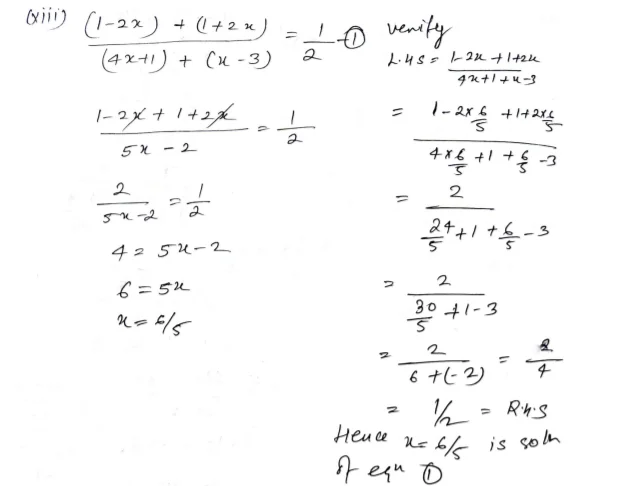 (xiii) ((1-2x) + (1+2x))/((4x+1) + (x-3)) = 1/2 -①
(1-2x + 1+2x)/(5x-2) = 1/2
2/(5x-2) = 1/2
4 = 5x-2
6 = 5x
x = 6/5
verify
L.H.S = (1-2x+1+2x)/(4x+1+x-3)
= (1-2×6/5 +1+2×6/5)/(4×6/5 +1 +6/5 -3)
= 2/(24/5 +1 +6/5 -3)
= 2/(30/5 +1-3)
= 2/(6+(-2)) = 2/4
= 1/2 = R.H.S
Hence x=6/5 is soln
of eqn ①